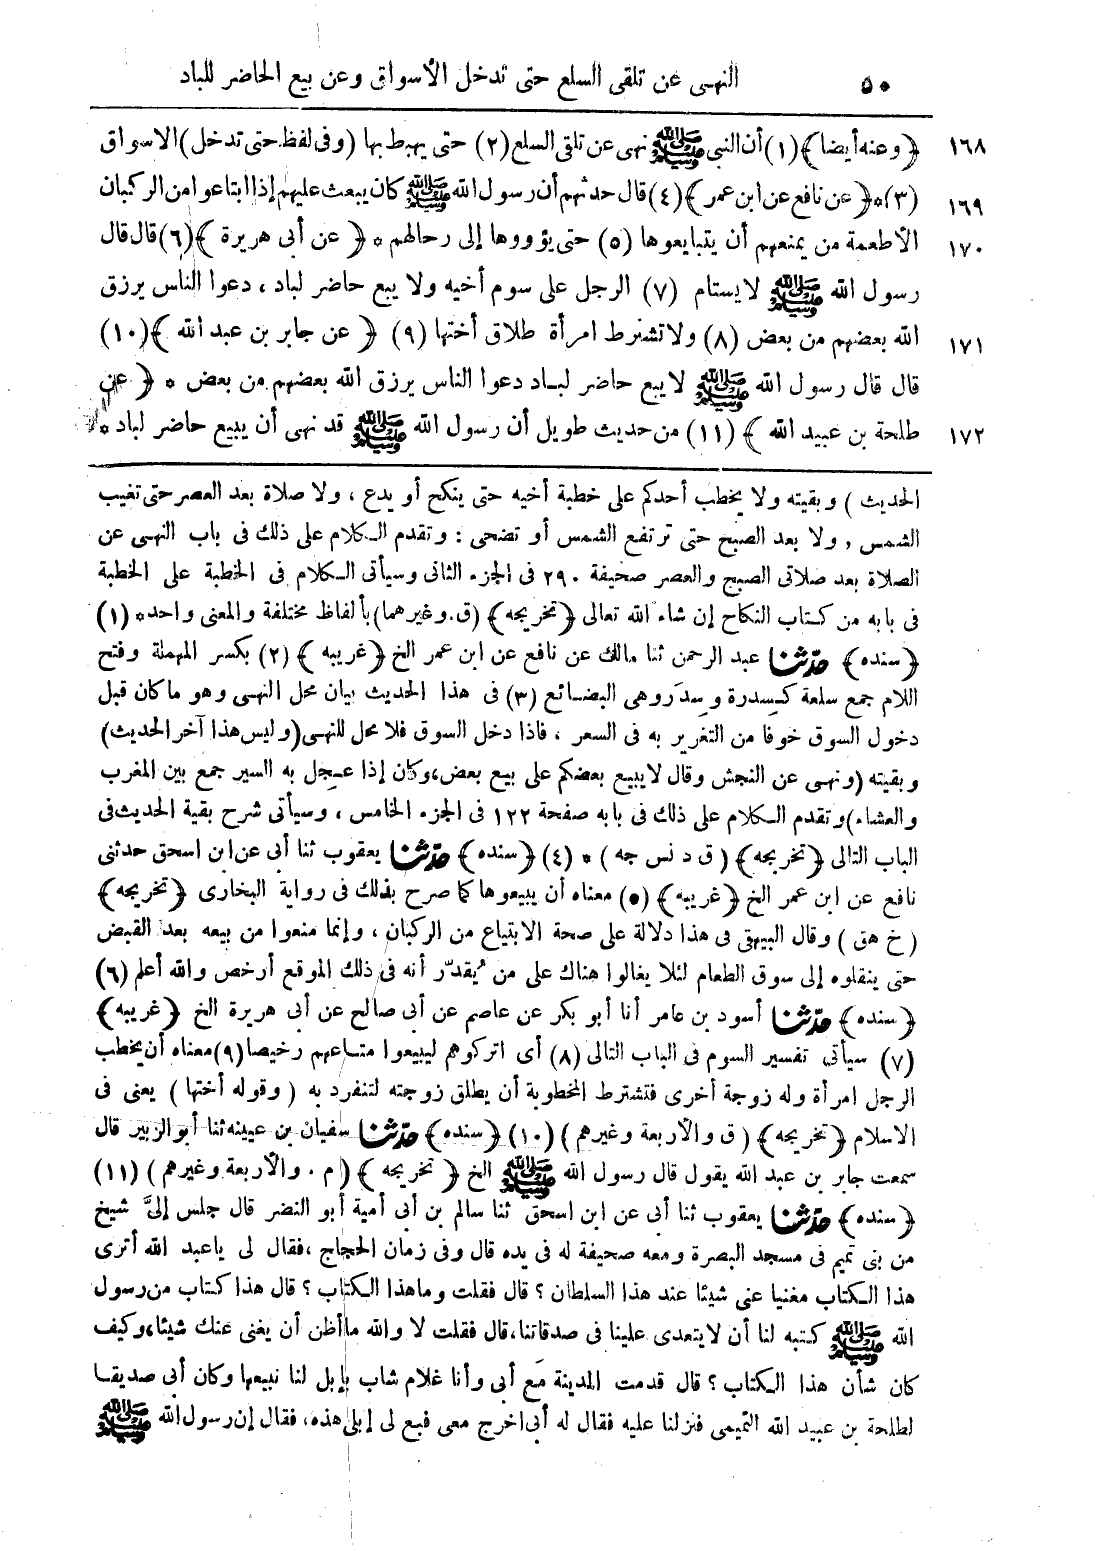 ٥٠ النهى عن تلقى السلع حتى تدخل الأسواق وعن بيع الحاضر للباد
١٦٨ ﴿وعنه أيضا﴾ (١) أن النبى ﷺ نهى عن تلقى السلع (٢) حتى يهبط بها (وفى لفظ حتى تدخل) الاسواق
١٦٩ (٣) * ﴿عن نافع عن ابن عمر﴾ (٤) قال حدثهم أن رسول الله ﷺ كان يبعث عليهم إذا ابتاعوا من الركبان
١٧٠ الأطعمة من يمنعهم أن يتبايعوها (٥) حتى يؤووها إلى رحالهم * ﴿عن أبى هريرة﴾ (٦) قال قال
رسول الله ﷺ لايستام (٧) الرجل على سوم أخيه ولا يبع حاضر لباد ، دعوا الناس يرزق
١٧١ الله بعضهم من بعض (٨) ولا تشترط امرأة طلاق أختها (٩) ﴿عن جابر بن عبد الله﴾ (١٠)
قال قال رسول الله ﷺ لا يبع حاضر لباد دعوا الناس يرزق الله بعضهم من بعض * ﴿عن
١٧٢ طلحة بن عبيد الله﴾ (١١) من حديث طويل أن رسول الله ﷺ قد نهى أن يبيع حاضر لباد *
الحديث) وبقيته ولا يخطب أحدكم على خطبة أخيه حتى ينكح أو يدع ، ولا صلاة بعد العصر حتى تغيب
الشمس ، ولا بعد الصبح حتى ترتفع الشمس أو تضحى : وتقدم الكلام على ذلك فى باب النهى عن
الصلاة بعد صلاتى الصبح والعصر صحيفة ٢٩٠ فى الجزء الثانى وسيأتى الكلام فى الخطبة على الخطبة
فى بابه من كتاب النكاح إن شاء الله تعالى ﴿تخريجه﴾ (ق. وغيرهما) بألفاظ مختلفة والمعنى واحد * (١)
﴿سنده﴾ حدّثنا عبد الرحمن ثنا مالك عن نافع عن ابن عمر الخ ﴿غريبه﴾ (٢) بكسر المهملة وفتح
اللام جمع سلعة كسِدرة وسِدَر وهى البضائع (٣) فى هذا الحديث بيان محل النهى وهو ماكان قبل
دخول السوق خوفا من التغرير به فى السعر ، فاذا دخل السوق فلا محل للنهى (وليس هذا آخر الحديث)
وبقيته (ونهى عن النجش وقال لايبيع بعضكم على بيع بعض، وكان إذا عجل به السير جمع بين المغرب
والعشاء) وتقدم الكلام على ذلك فى بابه صفحة ١٢٢ فى الجزء الخامس ، وسيأتى شرح بقية الحديث فى
الباب التالى ﴿تخريجه﴾ (ق د نس جه) * (٤) ﴿سنده﴾ حدّثنا يعقوب ثنا أبى عن ابن اسحق حدثنى
نافع عن ابن عمر الخ ﴿غريبه﴾ (٥) معناه أن يبيعوها كما صرح بذلك فى رواية البخارى ﴿تخريجه﴾
(خ هق) وقال البيهقى فى هذا دلالة على صحة الابتياع من الركبان ، وإنما منعوا من بيعه بعد القبض
حتى ينقلوه إلى سوق الطعام لئلا يغالوا هناك على من يُقدّر أنه فى ذلك الموقع أرخص والله أعلم (٦)
﴿سنده﴾ حدّثنا أسود بن عامر أنا أبو بكر عن عاصم عن أبى صالح عن أبى هريرة الخ ﴿غريبه﴾
(٧) سيأتى تفسير السوم فى الباب التالى (٨) أى اتركوهم ليبيعوا متاعهم رخيصا (٩) معناه أن يخطب
الرجل امرأة وله زوجة أخرى فتشترط المخطوبة أن يطلق زوجته لتنفرد به (وقوله أختها) يعنى فى
الاسلام ﴿تخريجه﴾ (ق والأربعة وغيرهم) (١٠) ﴿سنده﴾ حدّثنا سفيان بن عيينه ثنا أبو الزبير قال
سمعت جابر بن عبد الله يقول قال رسول الله ﷺ الخ ﴿تخريجه﴾ (م . والأربعة وغيرهم) (١١)
﴿سنده﴾ حدّثنا يعقوب ثنا أبى عن ابن اسحق ثنا سالم بن أبى أمية أبو النضر قال جلس إلىَّ شيخ
من بنى تميم فى مسجد البصرة ومعه صحيفة له فى يده قال وفى زمان الحجاج ، فقال لى ياعبد الله أترى
هذا الكتاب مغنيا عنى شيئا عند هذا السلطان ؟ قال فقلت وماهذا الكتاب ؟ قال هذا كتاب من رسول
الله ﷺ كتبه لنا أن لايتعدى علينا فى صدقاتنا، قال فقلت لا والله ماأظن أن يغنى عنك شيئا، وكيف
كان شأن هذا الكتاب ؟ قال قدمت المدينة مع أبى وأنا غلام شاب بإبل لنا نبيعها وكان أبى صديقا
لطلحة بن عبيد الله التيمى فنزلنا عليه فقال له أبى اخرج معى فبع لى إبلى هذه، فقال إن رسول الله ﷺ